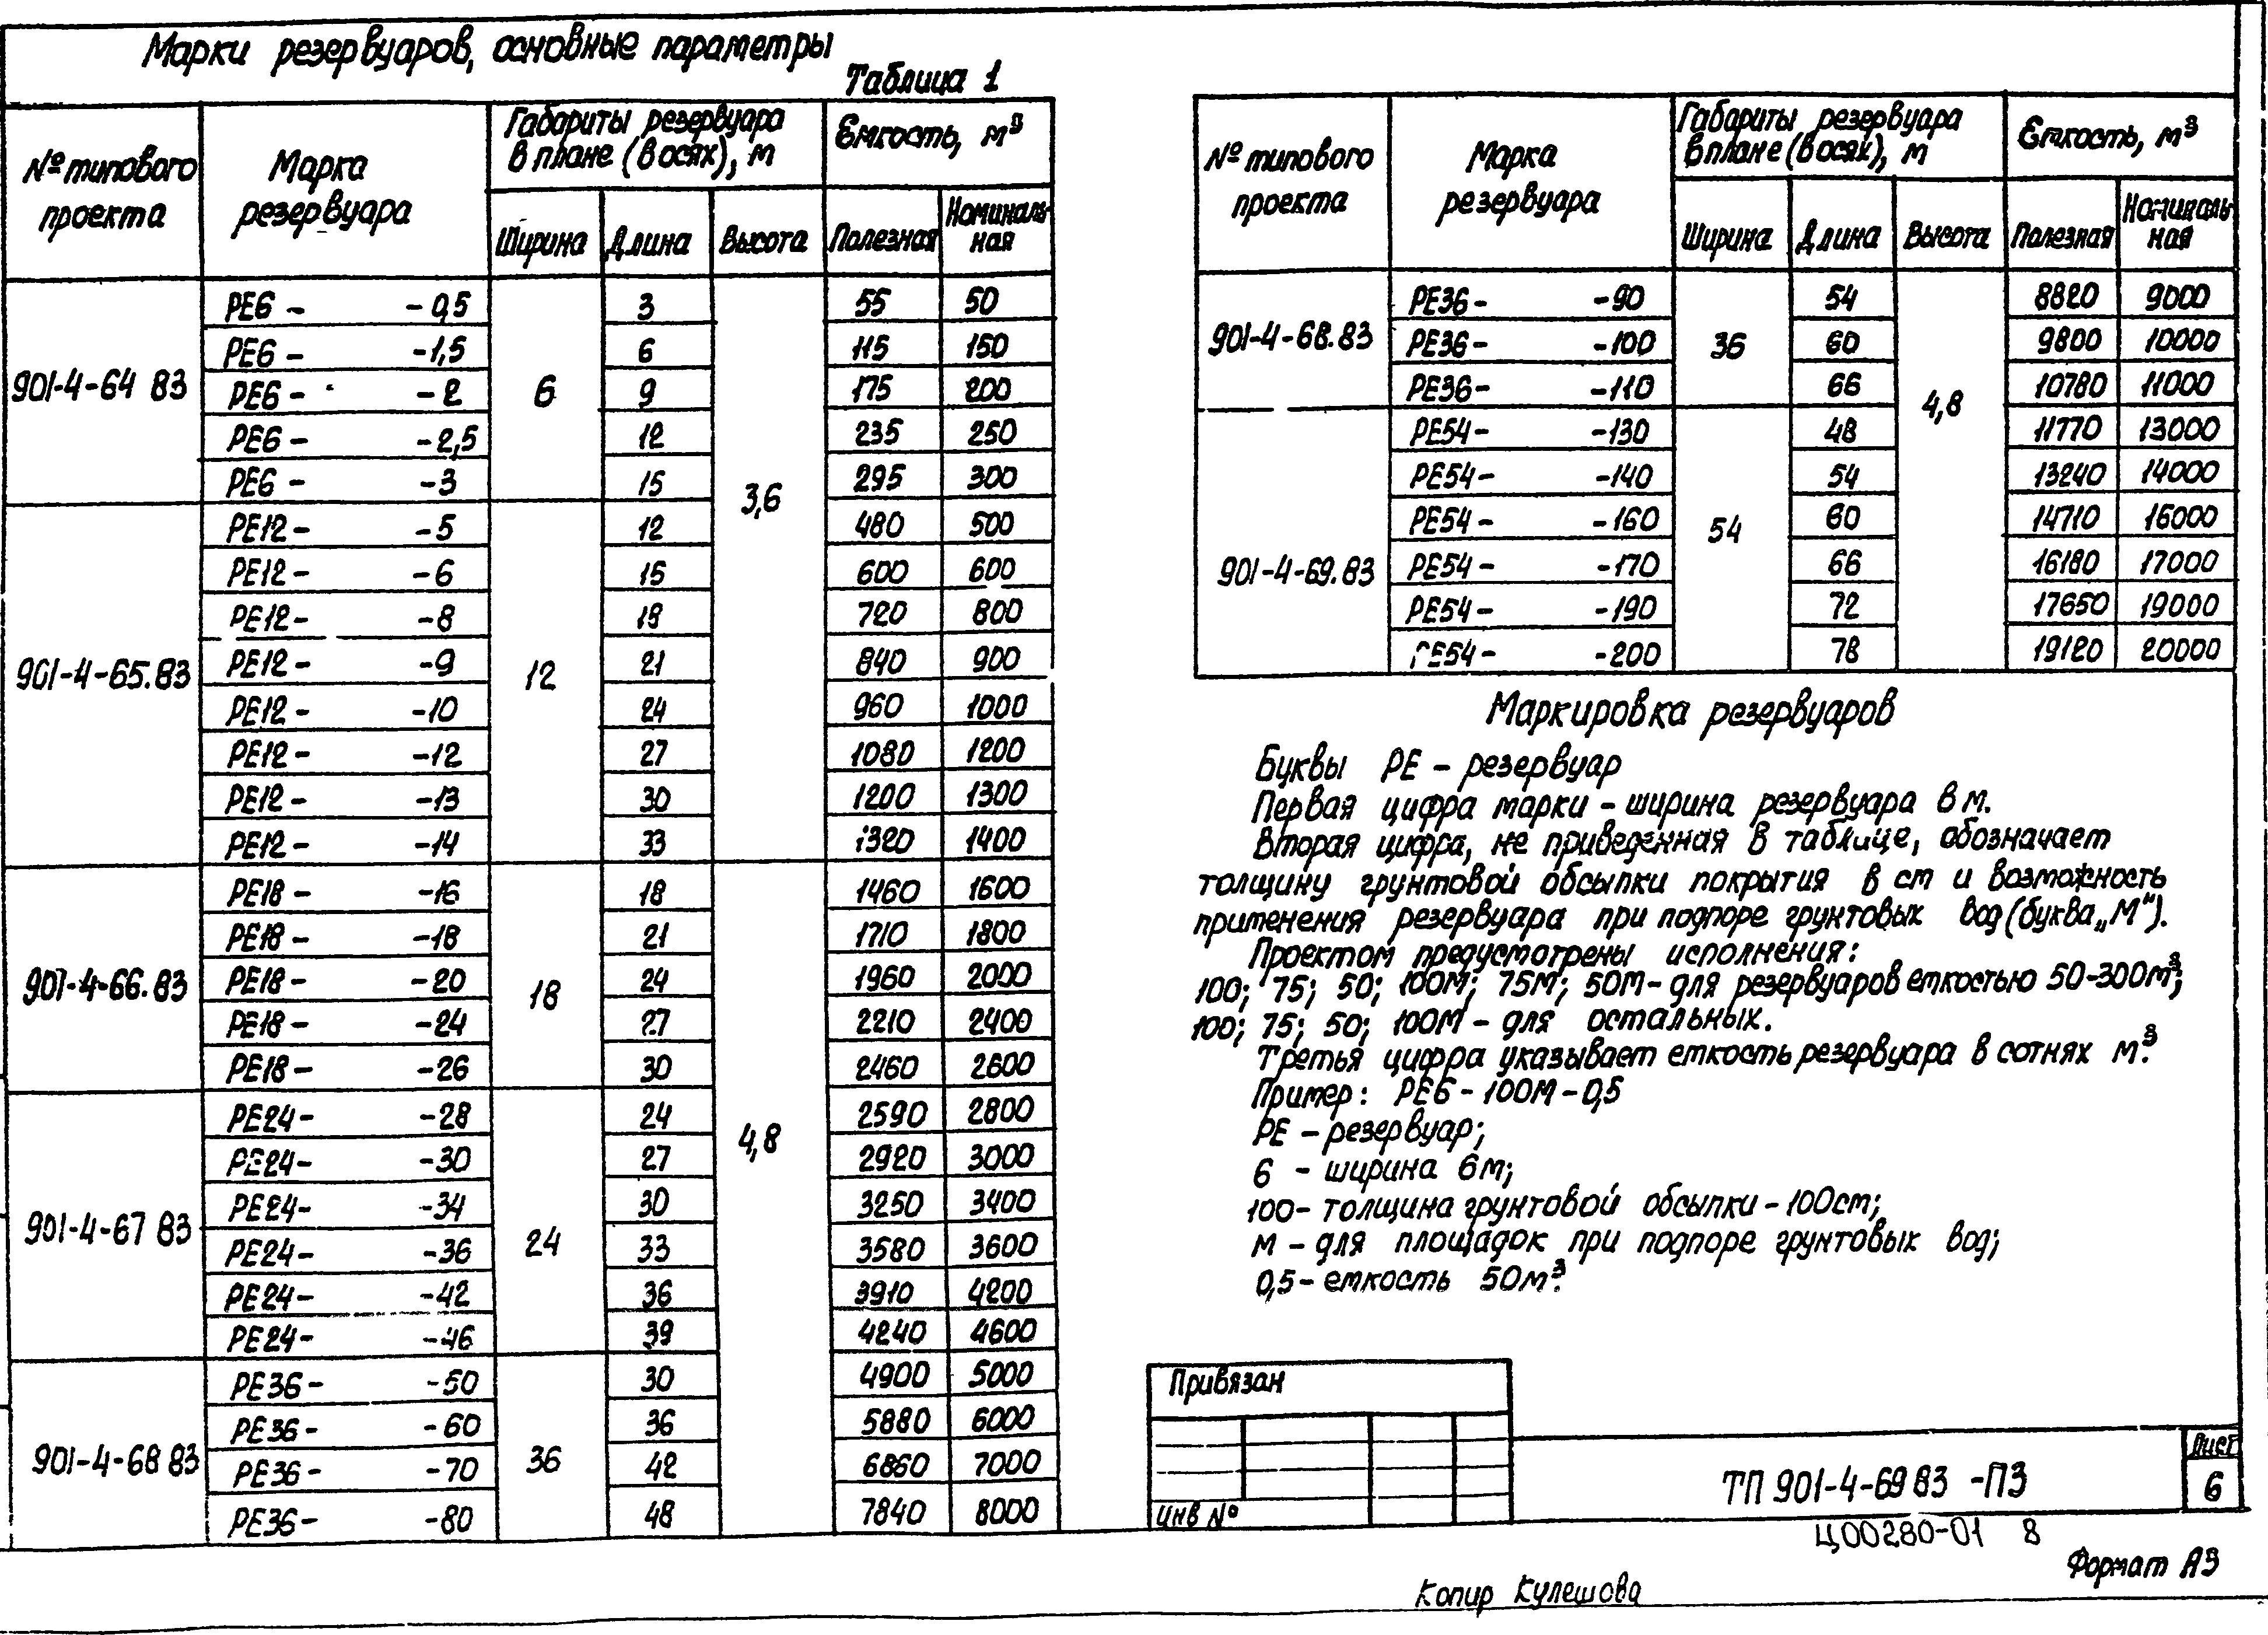 Марки резервуаров, основные параметры
Таблица 1
№ типового проекта | Марка резервуара | Габариты резервуара в плане (в осях), м | Емкость, м³
Ширина | Длина | Высота | Полезная | Номиналь-ная
901-4-64 83 | РЕ6 - - 0,5 | 6 | 3 | 3,6 | 55 | 50
РЕ6 - -1,5 | 6 | 115 | 150
РЕ6 - - 2 | 9 | 175 | 200
РЕ6 - -2,5 | 12 | 235 | 250
РЕ6 - -3 | 15 | 295 | 300
901-4-65.83 | РЕ12- -5 | 12 | 12 | 480 | 500
РЕ12- -6 | 15 | 600 | 600
РЕ12- -8 | 18 | 720 | 800
РЕ12- -9 | 21 | 840 | 900
РЕ12- -10 | 24 | 960 | 1000
РЕ12- -12 | 27 | 1080 | 1200
РЕ12- -13 | 30 | 1200 | 1300
РЕ12- -14 | 33 | 1320 | 1400
901-4-66.83 | РЕ18- -16 | 18 | 18 | 4,8 | 1460 | 1600
РЕ18- -18 | 21 | 1710 | 1800
РЕ18- -20 | 24 | 1960 | 2000
РЕ18- -24 | 27 | 2210 | 2400
РЕ18- -26 | 30 | 2460 | 2600
901-4-67 83 | РЕ24- -28 | 24 | 24 | 2590 | 2800
РЕ24- -30 | 27 | 2920 | 3000
РЕ24- -34 | 30 | 3250 | 3400
РЕ24- -36 | 33 | 3580 | 3600
РЕ24- -42 | 36 | 3910 | 4200
РЕ24- -46 | 39 | 4240 | 4600
901-4-68 83 | РЕ36- -50 | 36 | 30 | 4900 | 5000
РЕ36- -60 | 36 | 5880 | 6000
РЕ36- -70 | 42 | 6860 | 7000
РЕ36- -80 | 48 | 7840 | 8000
№ типового проекта | Марка резервуара | Габариты резервуара в плане (в осях), м | Емкость, м³
Ширина | Длина | Высота | Полезная | Номиналь-ная
901-4-68.83 | РЕ36- -90 | 36 | 54 | 4,8 | 8820 | 9000
РЕ36- -100 | 60 | 9800 | 10000
РЕ36- -110 | 66 | 10780 | 11000
901-4-69.83 | РЕ54- -130 | 54 | 48 | 11770 | 13000
РЕ54- -140 | 54 | 13240 | 14000
РЕ54- -160 | 60 | 14710 | 16000
РЕ54- -170 | 66 | 16180 | 17000
РЕ54- -190 | 72 | 17650 | 19000
РЕ54- -200 | 78 | 19120 | 20000
Маркировка резервуаров
Буквы РЕ - резервуар
Первая цифра марки - ширина резервуара в м.
Вторая цифра, не приведенная в таблице, обозначает
толщину грунтовой обсыпки покрытия в см и возможность
применения резервуара при подпоре грунтовых вод (буква „М").
Проектом предусмотрены исполнения:
100; 75; 50; 100М; 75М; 50М - для резервуаров емкостью 50-300м³;
100; 75; 50; 100М - для остальных.
Третья цифра указывает емкость резервуара в сотнях м³.
Пример: РЕ6 - 100М - 0,5
РЕ - резервуар;
6 - ширина 6м;
100- толщина грунтовой обсыпки - 100см;
М - для площадок при подпоре грунтовых вод;
0,5 - емкость 50м³.
Привязан
Инв №
ТП 901-4-69 83 -ПЗ
Лист
6
Ц00280-01 8
Формат А3
Копир Кулешова